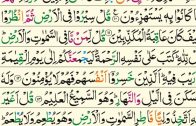 كَانُوا۟ بِهِۦ يَسْتَهْزِءُونَ ۝ قُلْ سِيرُوا۟ فِى ٱلْأَرْضِ ثُمَّ ٱنظُرُوا۟
كَيْفَ كَانَ عَٰقِبَةُ ٱلْمُكَذِّبِينَ ۝ قُل لِّمَن مَّا فِى ٱلسَّمَٰوَٰتِ وَٱلْأَرْضِ
لِّلَّهِ كَتَبَ عَلَىٰ نَفْسِهِ ٱلرَّحْمَةَ لَيَجْمَعَنَّكُمْ إِلَىٰ يَوْمِ ٱلْقِيَٰمَةِ
رَيْبَ فِيهِ ٱلَّذِينَ خَسِرُوٓا۟ أَنفُسَهُمْ فَهُمْ لَا يُؤْمِنُونَ ۝
سَكَنَ فِى ٱلَّيْلِ وَٱلنَّهَارِ وَهُوَ ٱلسَّمِيعُ ٱلْعَلِيمُ ۝ قُلْ أَغَيْرَ